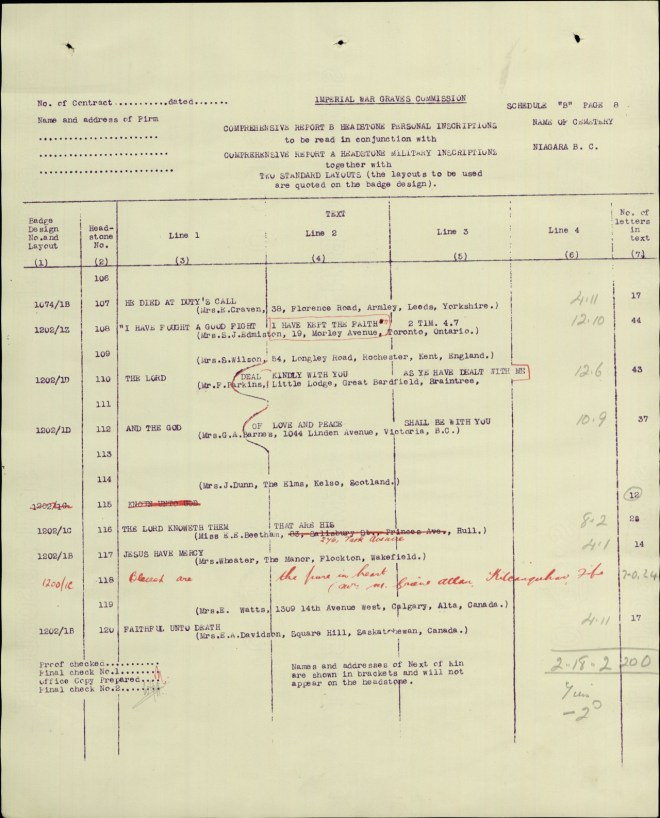 IMPERIAL WAR GRAVES COMMISSION
No. of Contract..........dated.......
SCHEDULE "B" PAGE 8
Name and address of Firm
NAME OF CEMETERY
COMPREHENSIVE REPORT B HEADSTONE PERSONAL INSCRIPTIONS
to be read in conjunction with
NIAGARA B. C.
COMPREHENSIVE REPORT A HEADSTONE MILITARY INSCRIPTIONS
together with
TWO STANDARD LAYOUTS (the layouts to be used
are quoted on the badge design).
TEXT
Badge Design No.and Layout Head-stone No. Line 1 Line 2 Line 3 Line 4 No. of letters in text
(1) (2) (3) (4) (5) (6) (7)
106
1074/1B 107 HE DIED AT DUTY'S CALL 4.11 17
(Mrs.E.Craven, 38, Florence Road, Armley, Leeds, Yorkshire.)
1202/1Z 108 "I HAVE FOUGHT A GOOD FIGHT I HAVE KEPT THE FAITH" 2 TIM. 4.7 12.10 44
(Mrs.E.J.Edmiston, 19, Morley Avenue, Toronto, Ontario.)
109
(Mrs.S.Wilson, 54, Longley Road, Rochester, Kent, England.)
1202/1D 110 THE LORD DEAL KINDLY WITH YOU AS YE HAVE DEALT WITH ME 12.6 43
(Mr.F.Parkins, Little Lodge, Great Bardfield, Braintree,
111
1202/1D 112 AND THE GOD OF LOVE AND PEACE SHALL BE WITH YOU 10.9 37
(Mrs.G.A.Barnes, 1044 Linden Avenue, Victoria, B.C.)
113
114
(Mrs.J.Dunn, The Elms, Kelso, Scotland.)
1202/1C 115 12
1202/1C 116 THE LORD KNOWETH THEM THAT ARE HIS 8.2 28
(Miss E.E.Beetham, 83, Salisbury St., Princes Ave., Hull.)
276, Park Avenue
1202/1B 117 JESUS HAVE MERCY 4.1 14
(Mrs.Wheater, The Manor, Flockton, Wakefield.)
1200/1C 118 Blessed are the pure in heart
119
(Mrs.E. Watts, 1309 14th Avenue West, Calgary, Alta, Canada.)
1202/1B 120 FAITHFUL UNTO DEATH 4.11 17
(Mrs.E.A.Davidson, Square Hill, Saskatchewan, Canada.)
Proof checked..........
Final check No.1........
Office Copy Prepared....
Final check No.2........
Names and addresses of Next of Kin
are shown in brackets and will not
appear on the headstone.
2-18-2 200